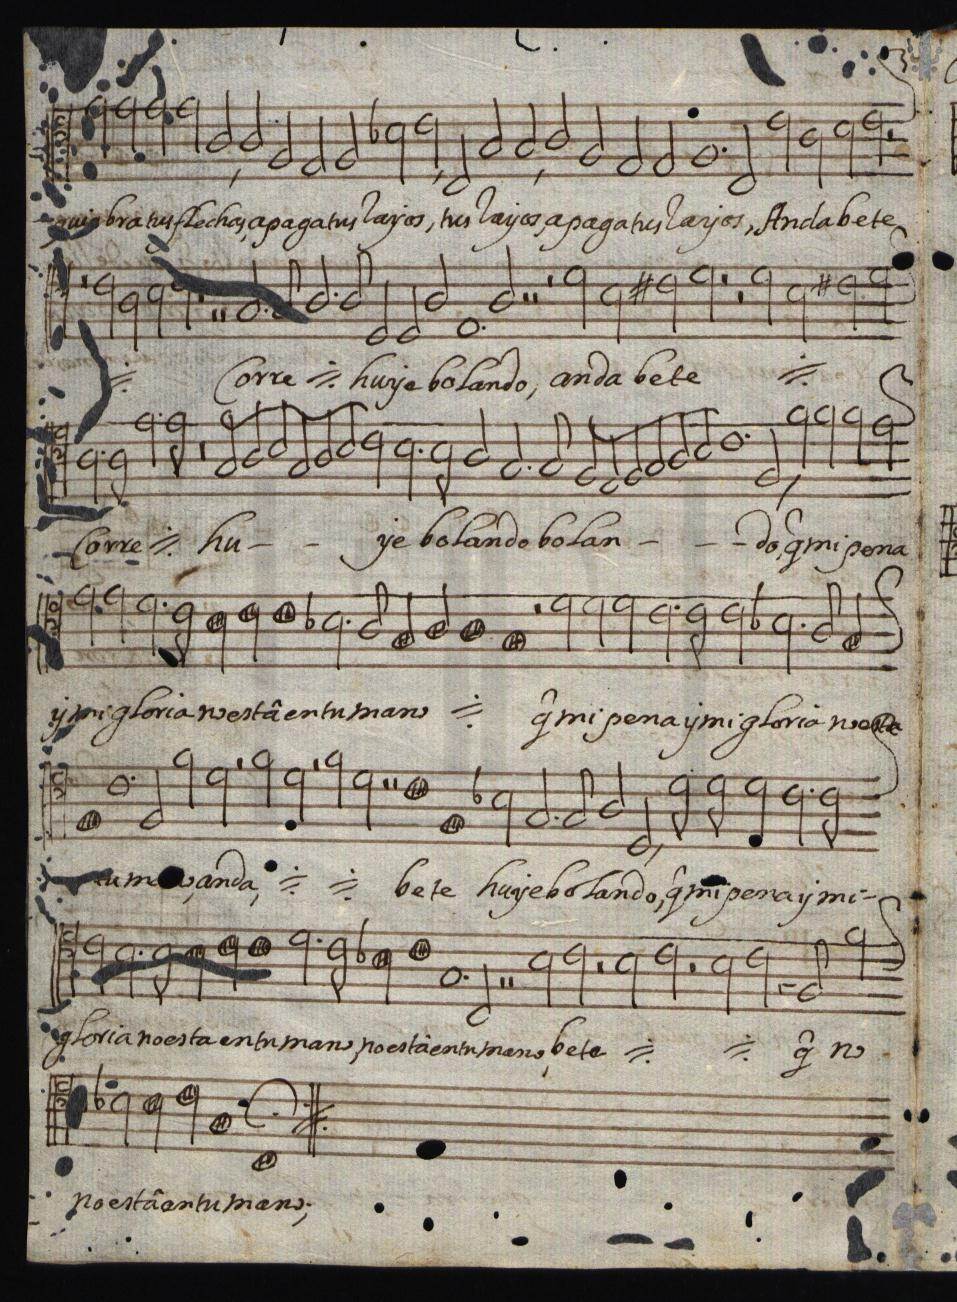 quiebra tus flechas, apaga tus rayos, tus rayos, apaga tus rayos, Anda bete
Corre huye bolando, anda bete
Corre hu - - ye bolando bolan - - - do, q̂ mi pena
ÿ mi gloria no estâ en tu mano q̂ mi pena ÿ mi gloria no esta
tu mano, anda, bete huye bolando, q̂ mi pena ÿ mi -
gloria no esta en tu mano, no estâ en tu mano, bete q̂ no
no estâ en tu mano;